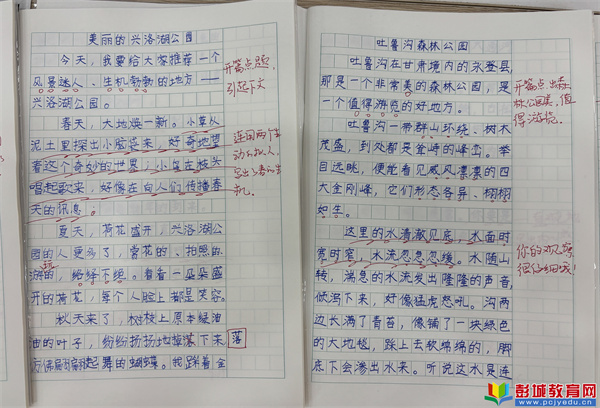 美丽的兴洛湖公园
今天,我要给大家推荐一个
风景迷人、生机勃勃的地方——
兴洛湖公园。
春天,大地焕一新。小草从
泥土里探出小脑袋来,好奇地望
着这个奇妙的世界;小鸟在枝头
唱起歌来,好像在向人们传播春
天的讯息。
夏天,荷花盛开,兴洛湖公
园的人更多了,赏花的、拍照的、
游玩的,络绎不绝。看着一朵朵盛
开的荷花,每个人脸上都是笑容。
秋天来了,树枝上原本绿油
油的叶子,纷纷扬扬地掉落下来
仿佛翩翩起舞的蝴蝶。我踩着金
开篇点题,
引起下文
连用两个生
动的拟人,
写出了春的生
机。
落
吐鲁沟森林公园
吐鲁沟在甘肃境内的永登县,
那是一个非常美的森林公园,是
一个值得游览的好地方。
吐鲁沟一带群山环绕、树木
茂盛,到处都是耸峙的峰峦。举
目远眺,便能看见威风凛凛的四
大金刚峰,它们形态各异、栩栩
如生。
这里的水清澈见底,水面时
宽时窄,水流忽急忽缓。水随山
转,湍急的水流发出隆隆的声音,
倾泻下来,好像猛虎怒吼。沟两
边长满了青苔,像铺了一块绿色
的大地毯,踩上去软绵绵的,脚
底下会渗出水来。听说这水是连
开篇点出森
林公园美,值
得游览。
你的观察
很仔细哦!
彭城教育网
www.pcjyedu.cn